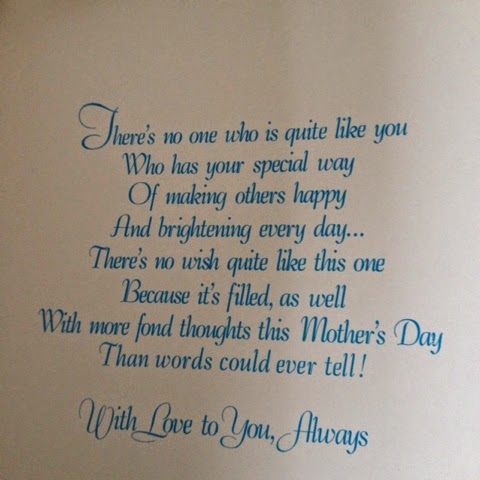 There's no one who is quite like you
Who has your special way
Of making others happy
And brightening every day...
There's no wish quite like this one
Because it's filled, as well
With more fond thoughts this Mother's Day
Than words could ever tell!
With Love to You, Always